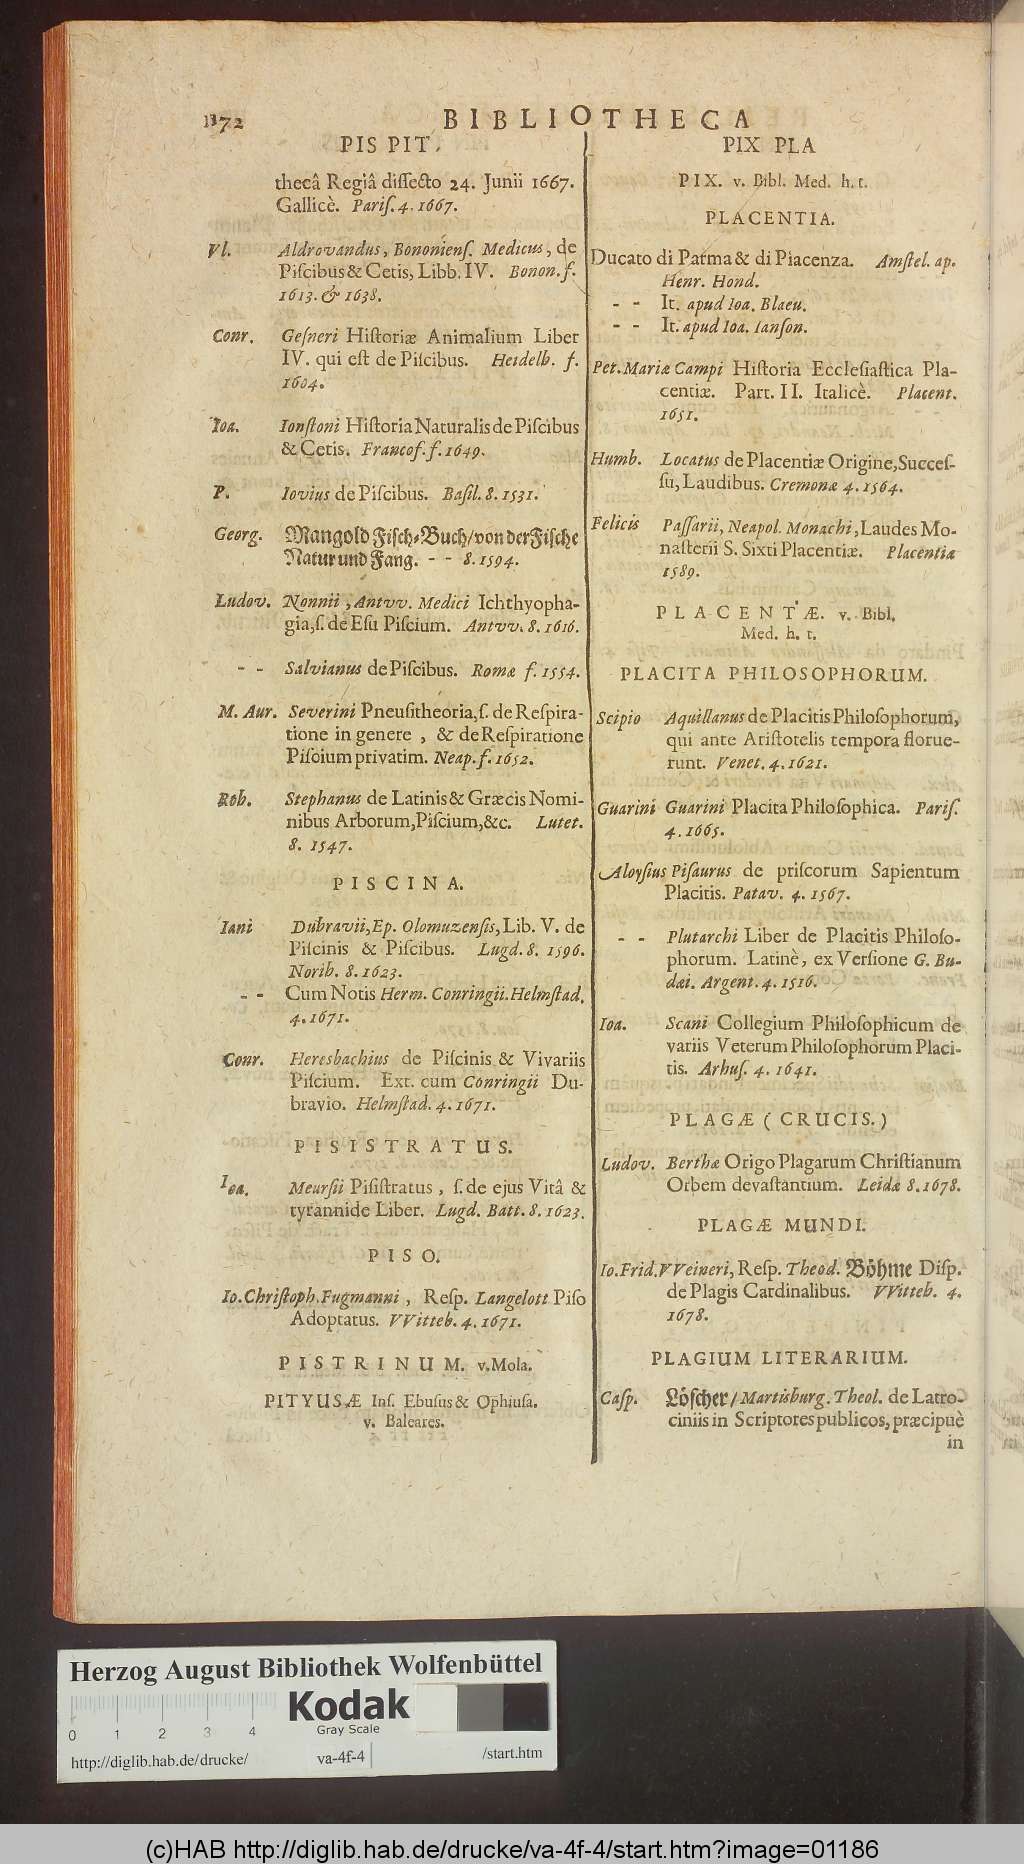 1172
BIBLIOTHECA
PIS PIT.
thecâ Regiâ diſſecto 24. Junii 1667.
Gallicè. Pariſ. 4. 1667.
Vl. Aldrovandus, Bononienſ. Medicus, de
Piſcibus & Cetis, Libb. IV. Bonon. f.
1613. & 1638.
Conr. Geſneri Hiſtoriæ Animalium Liber
IV. qui eſt de Piſcibus. Heidelb. f.
1604.
Ioa. Ionſtoni Hiſtoria Naturalis de Piſcibus
& Cetis. Francof. f. 1649.
P. Iovius de Piſcibus. Baſil. 8. 1531.
Georg. Mangold Fiſch-Buch/von der Fiſche
Natur und Fang. - - 8. 1594.
Ludov. Nonnii, Antvv. Medici Ichthyopha-
gia, ſ. de Eſu Piſcium. Antvv. 8. 1616.
- - Salvianus de Piſcibus. Romæ f. 1554.
M. Aur. Severini Pneuſitheoria, ſ. de Reſpira-
tione in genere, & de Reſpiratione
Piſcium privatim. Neap. f. 1652.
Rob. Stephanus de Latinis & Græcis Nomi-
nibus Arborum, Piſcium, &c. Lutet.
8. 1547.
PISCINA.
Iani Dubravii, Ep. Olomuzenſis, Lib. V. de
Piſcinis & Piſcibus. Lugd. 8. 1596.
Norib. 8. 1623.
- - Cum Notis Herm. Conringii. Helmſtad.
4. 1671.
Conr. Heresbachius de Piſcinis & Vivariis
Piſcium. Ext. cum Conringii Du-
bravio. Helmſtad. 4. 1671.
PISISTRATUS.
Ioa. Meurſii Piſiſtratus, ſ. de ejus Vitâ &
tyrannide Liber. Lugd. Batt. 8. 1623.
PISO.
Io. Chriſtoph. Fugmanni, Reſp. Langelott Piſo
Adoptatus. VVitteb. 4. 1671.
PISTRINUM. v. Mola.
PITYUSÆ Inſ. Ebuſus & Ophiuſa.
v. Baleares.
PIX PLA
PIX. v. Bibl. Med. h. t.
PLACENTIA.
Ducato di Parma & di Piacenza. Amſtel. ap.
Henr. Hond.
- - It. apud Ioa. Blaeu.
- - It. apud Ioa. Ianſon.
Pet. Mariæ Campi Hiſtoria Eccleſiaſtica Pla-
centiæ. Part. II. Italicè. Placent.
1651.
Humb. Locatus de Placentiæ Origine, Succeſ-
ſu, Laudibus. Cremonæ 4. 1564.
Felicis Paſſarii, Neapol. Monachi, Laudes Mo-
naſterii S. Sixti Placentiæ. Placentiæ
1589.
PLACENTÆ. v. Bibl.
Med. h. t.
PLACITA PHILOSOPHORUM.
Scipio Aquillanus de Placitis Philoſophorum,
qui ante Ariſtotelis tempora florue-
runt. Venet. 4. 1621.
Guarini Guarini Placita Philoſophica. Pariſ.
4. 1665.
Aloyſius Piſaurus de priſcorum Sapientum
Placitis. Patav. 4. 1567.
- - Plutarchi Liber de Placitis Philoſo-
phorum. Latinè, ex Verſione G. Bu-
dæi. Argent. 4. 1516.
Ioa. Scani Collegium Philoſophicum de
variis Veterum Philoſophorum Placi-
tis. Arhuſ. 4. 1641.
PLAGÆ (CRUCIS.)
Ludov. Berthæ Origo Plagarum Chriſtianum
Orbem devaſtantium. Leidæ 8. 1678.
PLAGÆ MUNDI.
Io. Frid. VVeineri, Reſp. Theod. Böhme Diſp.
de Plagis Cardinalibus. VVitteb. 4.
1678.
PLAGIUM LITERARIUM.
Caſp. Löſcher / Martisburg. Theol. de Latro-
ciniis in Scriptores publicos, præcipuè
in
Herzog August Bibliothek Wolfenbüttel
Kodak
Gray Scale
0 1 2 3 4
http://diglib.hab.de/drucke/ va-4f-4 /start.htm
(c)HAB http://diglib.hab.de/drucke/va-4f-4/start.htm?image=01186